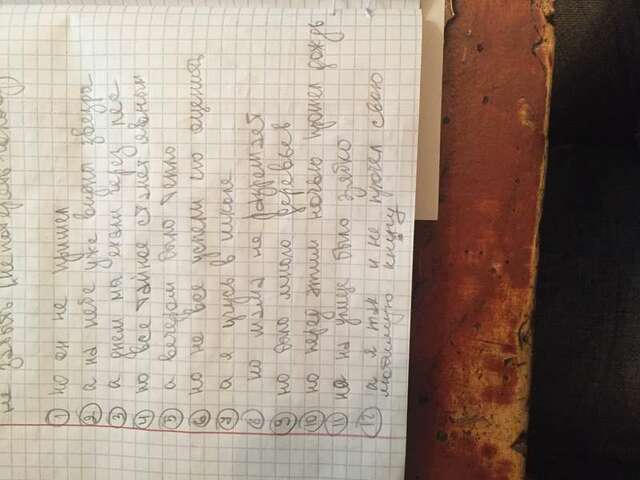 не забыть
① но он не пришёл
② а на небе уже видны звезды
③ а днем мы ехали через лес
④ но все тайное станет явным
⑤ а вечером было тепло
⑥ но не все успели это оценить
⑦ а я учусь в школе
⑧ но мама не разрешает
⑨ но было много деревьев
⑩ но перед этим ночью прошел дождь
⑪ на улице было зябко
⑫ а я так и не прочел свою
любимую книгу